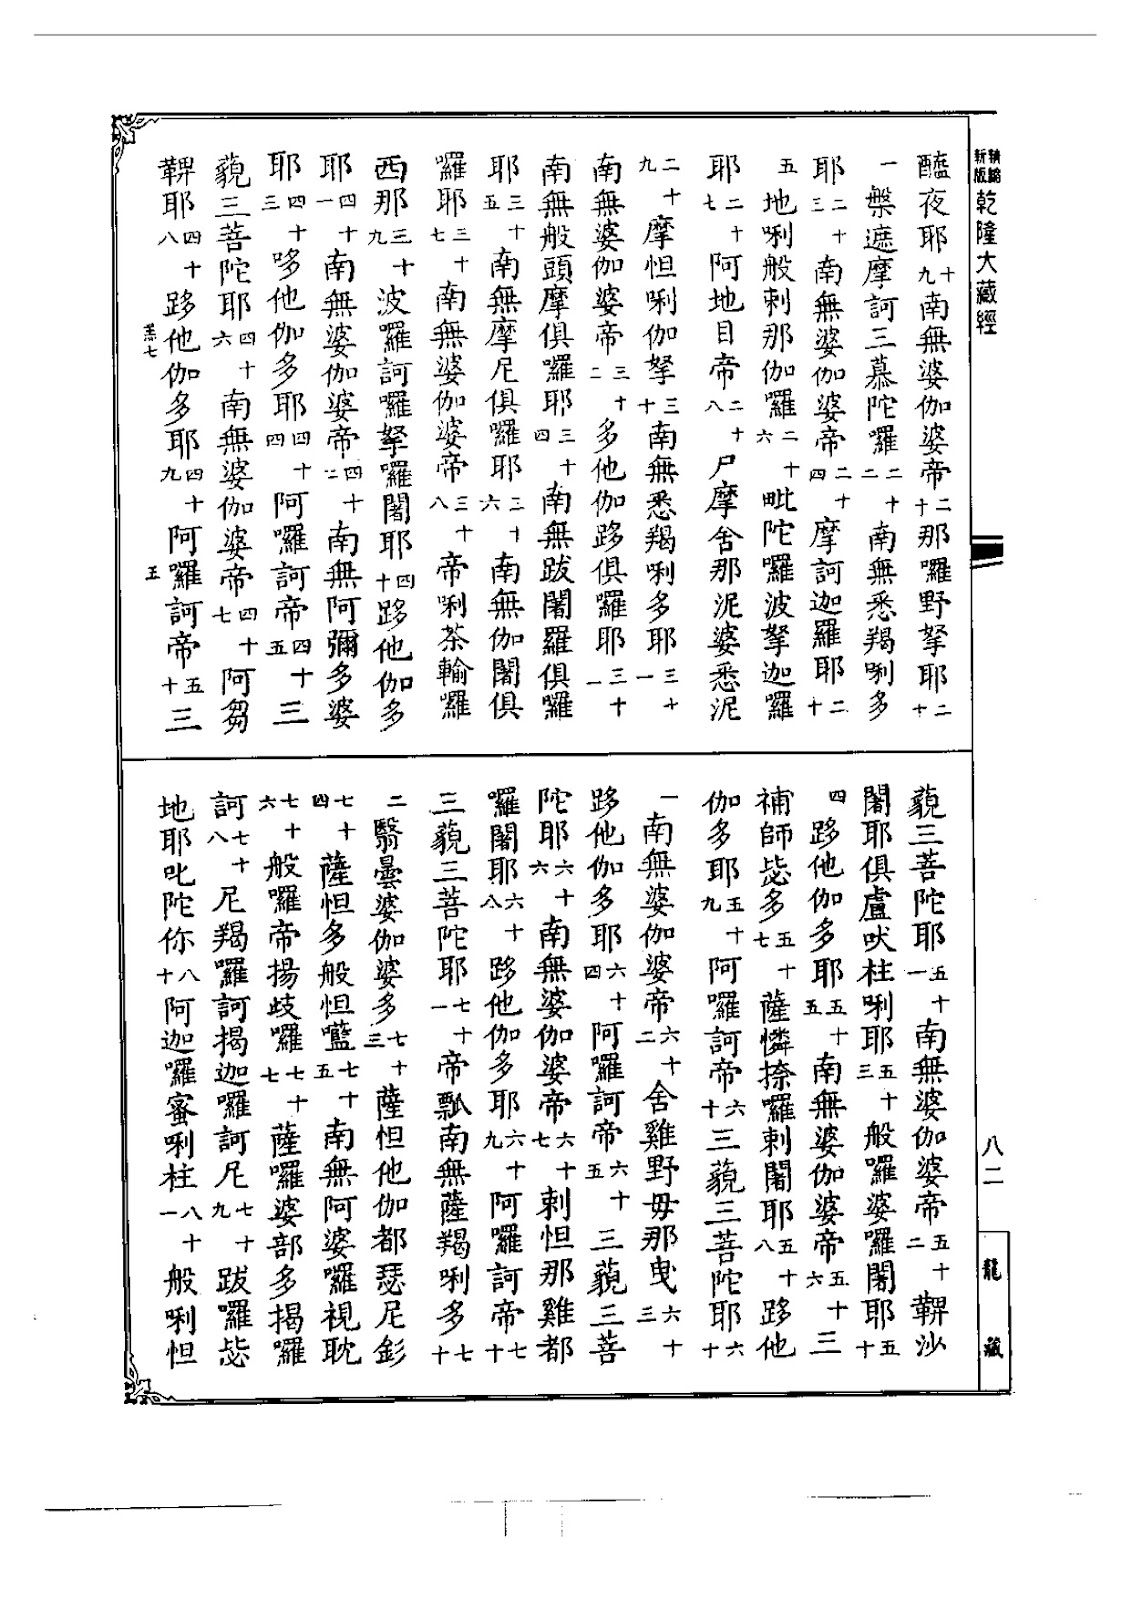 精縮新版
乾隆大藏經
醯夜耶十九南無婆伽婆帝二十那羅野拏耶二十
一槃遮摩訶三慕陀羅二十二南無悉羯唎多
耶二十三南無婆伽婆帝二十四摩訶迦羅耶二十
五地唎般剌那伽羅二十六毗陀羅波拏迦羅
耶二十七阿地目帝二十八尸摩舍那泥婆悉泥
二十九摩怛唎伽拏三十南無悉羯唎多耶三十一
南無婆伽婆帝三十二多他伽跢俱羅耶三十三
南無般頭摩俱囉耶三十四南無跋闍羅俱囉
耶三十五南無摩尼俱囉耶三十六南無伽闍俱
囉耶三十七南無婆伽婆帝三十八帝唎茶輸囉
西那三十九波囉訶囉拏囉闍耶四十跢他伽多
耶四十一南無婆伽婆帝四十二南無阿彌多婆
耶四十三哆他伽多耶四十四阿囉訶帝四十五三
藐三菩陀耶四十六南無婆伽婆帝四十七阿芻
鞞耶四十八跢他伽多耶四十九阿囉訶帝五十三
羔七
五
藐三菩陀耶五十一南無婆伽婆帝五十二鞞沙
闍耶俱盧吠柱唎耶五十三般囉婆囉闍耶五十
四跢他伽多耶五十五南無婆伽婆帝五十六三
補師毖多五十七薩憐捺囉剌闍耶五十八跢他
伽多耶五十九阿囉訶帝六十三藐三菩陀耶六十
一南無婆伽婆帝六十二舍雞野毋那曳六十三
跢他伽多耶六十四阿囉訶帝六十五三藐三菩
陀耶六十六南無婆伽婆帝六十七剌怛那雞都
囉闍耶六十八跢他伽多耶六十九阿囉訶帝七十
三藐三菩陀耶七十一帝瓢南無薩羯唎多七十
二翳曇婆伽婆多七十三薩怛他伽都瑟尼釤
七十四薩怛多般怛囕七十五南無阿婆囉視耽
七十六般囉帝揚歧囉七十七薩囉婆部多揭囉
訶七十八尼羯囉訶揭迦囉訶尼七十九跋囉毖
地耶叱陀你八十阿迦囉蜜唎柱八十一般唎怛
八二
龍藏